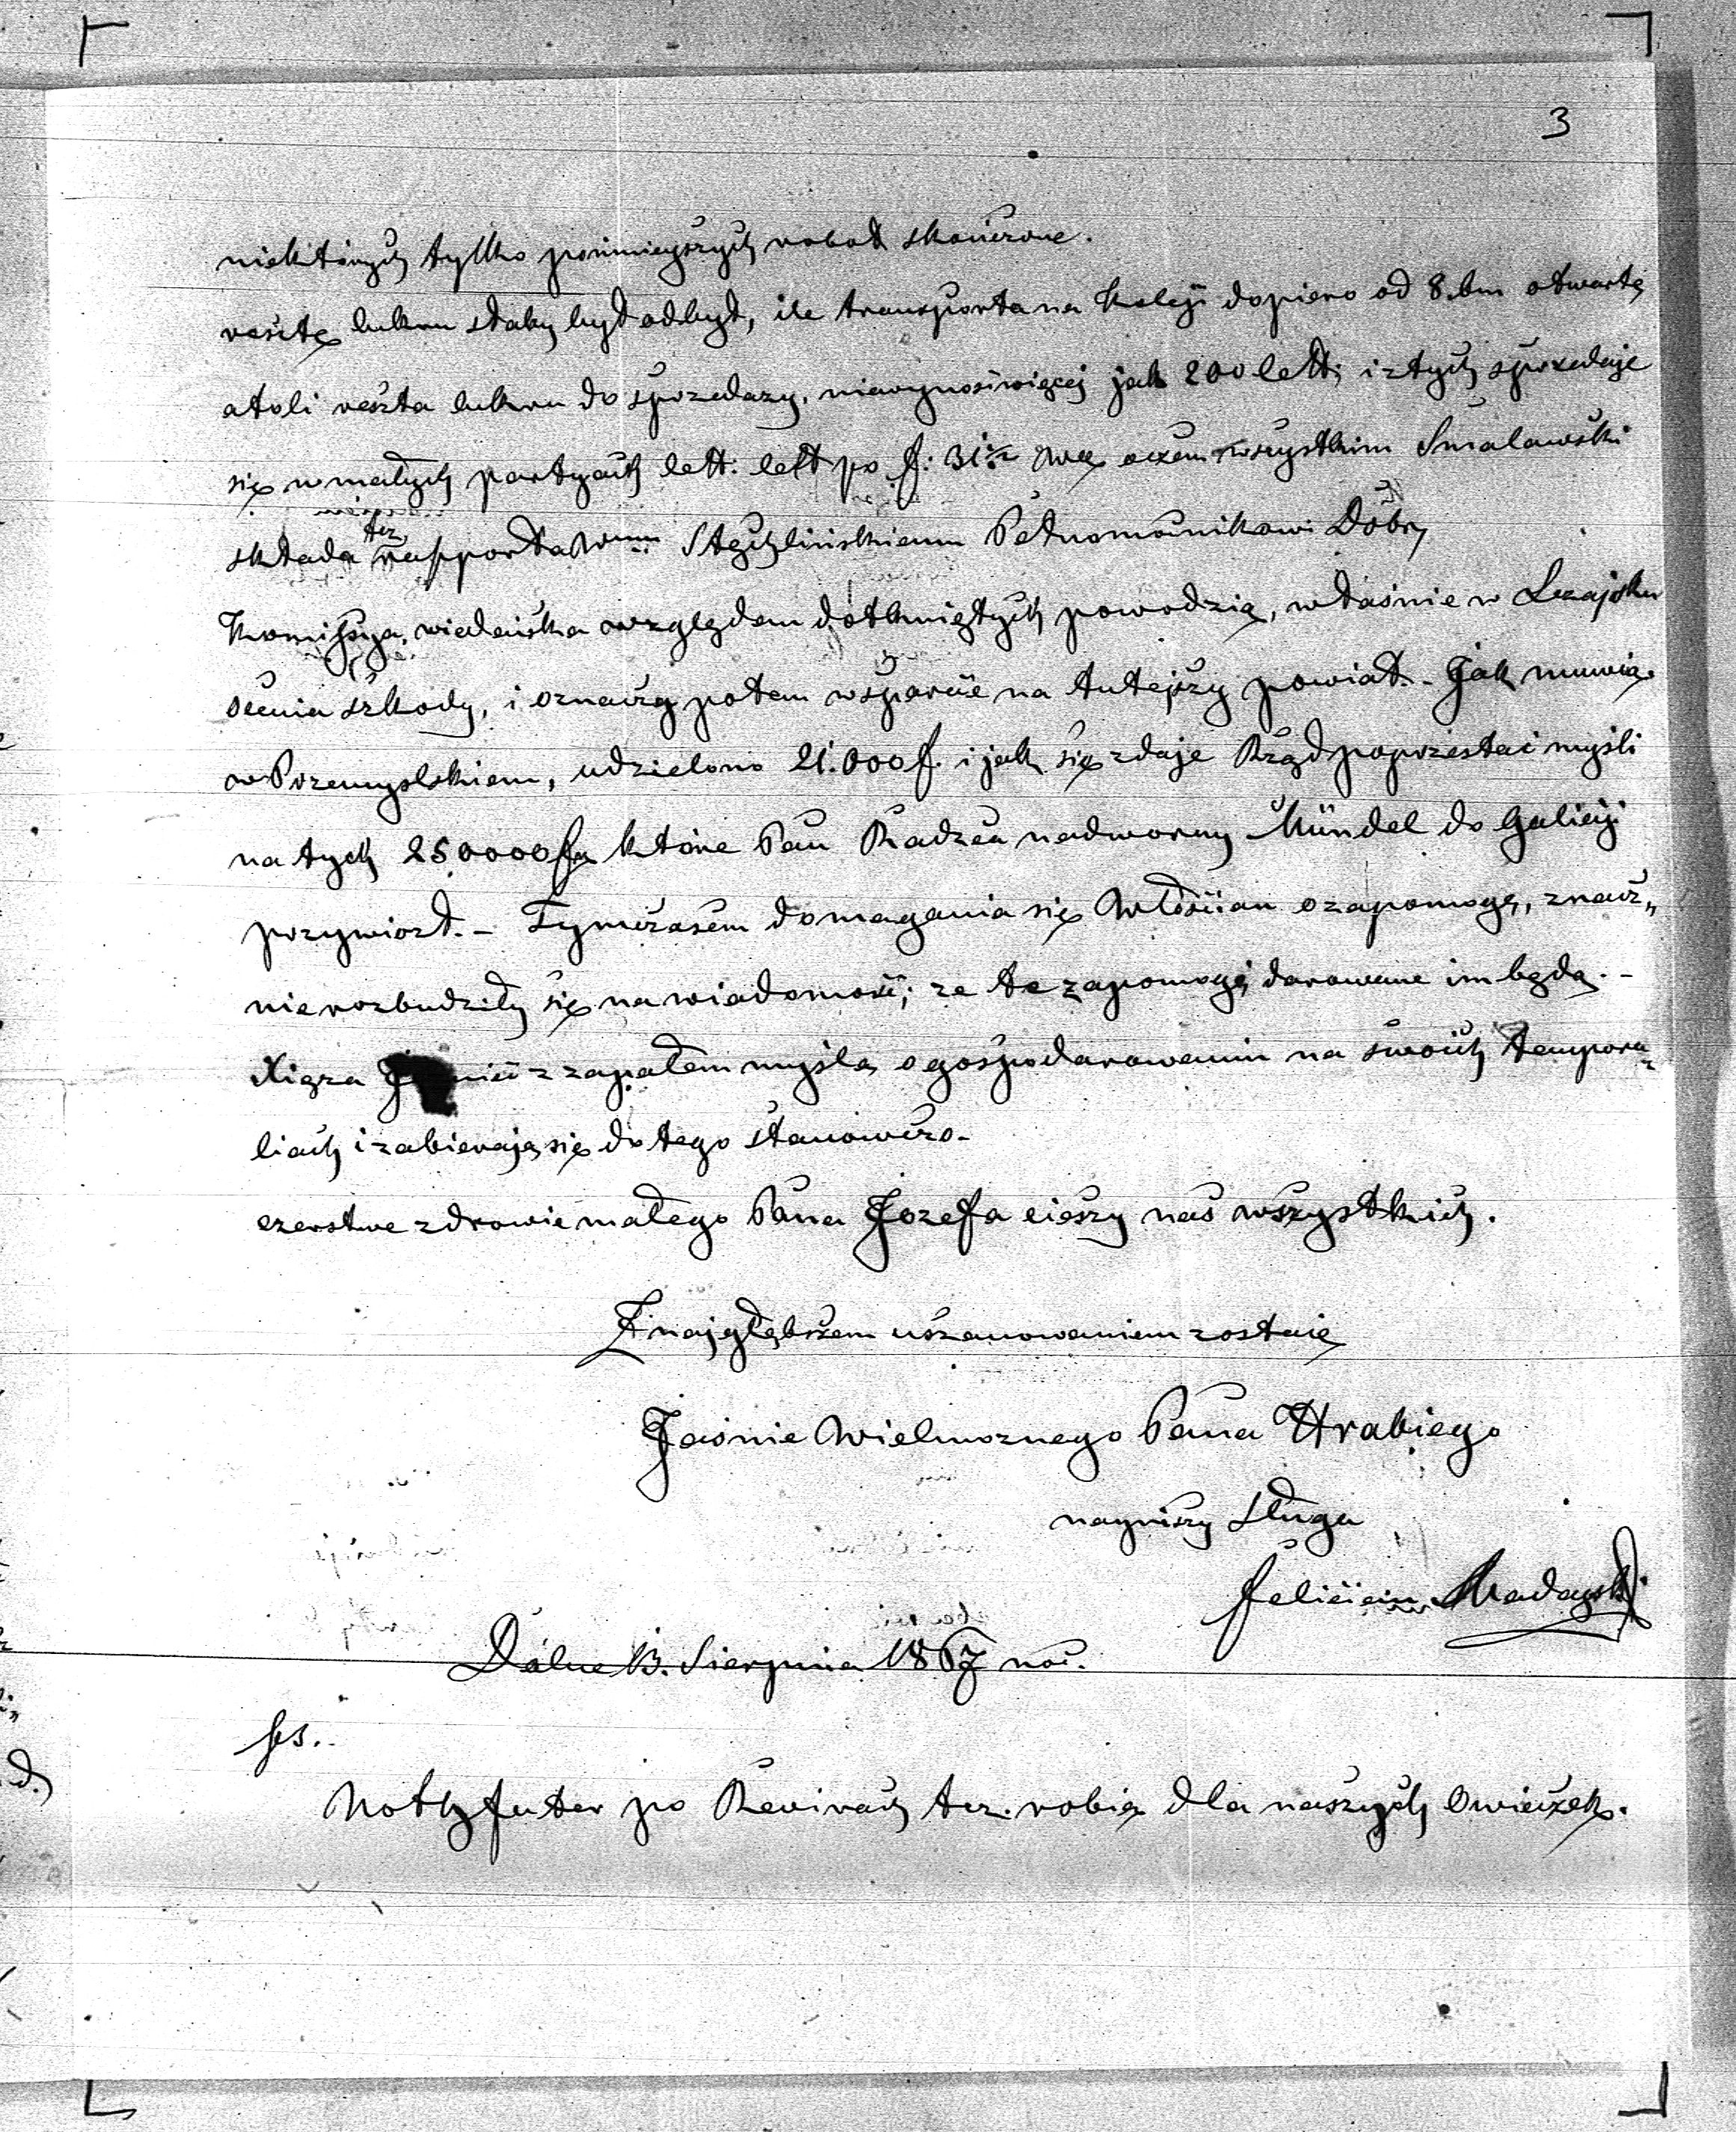 3
niektórych tylko pomniejszych robot skończone.
resztę cukru słaby był odbyt, ile transporta na Koleji dopiero od 8. bm otwartę
atoli reszta cukru do sprzedazy, niewynosi więcej jak 200 cett; i z tych sprzedaje
się w małych partyach cett: cett po f: 31 oczem wszystkim Smalawski
składa tez rapporta Stychlińskiemu Pełnomocnikowi Dóbr,
Komissya, wiedeńska względem dotkniętych powodzią, właśnie w Lezajsku
ocenia szkody, i oznaczy potem wsparcie na tutejszy powiat. - Jak muwią
w Przemyslskiem, udzielono 21.000 f. i jak się zdaje Rząd poprzestać myśli
na tych 250000 f które Pan Radzca nadworny Mündel do Galicji
przywiozł. - Tymczasem domagania się Włościan o zapomogę, znacz„
nie rozbudziły się na wiadomość; ze te zapomogi darowane im będą. -
Xięza z zapałem myślą o gospodarowaniu na swoich tempora„
liach i zabierają się do tego stanowczo.
czerstwe zdrowie małego Pana Józefa cieszy nas wszystkich.
Z najgłębszem uszanowaniem zostaię
Jaśnie Wielmoznego Pana Hrabiego
nayniszy sługa
Felicien Madayski
13. Sierpnia 1867
ps.
po Revirach tez robią dla naszych Owieczek.